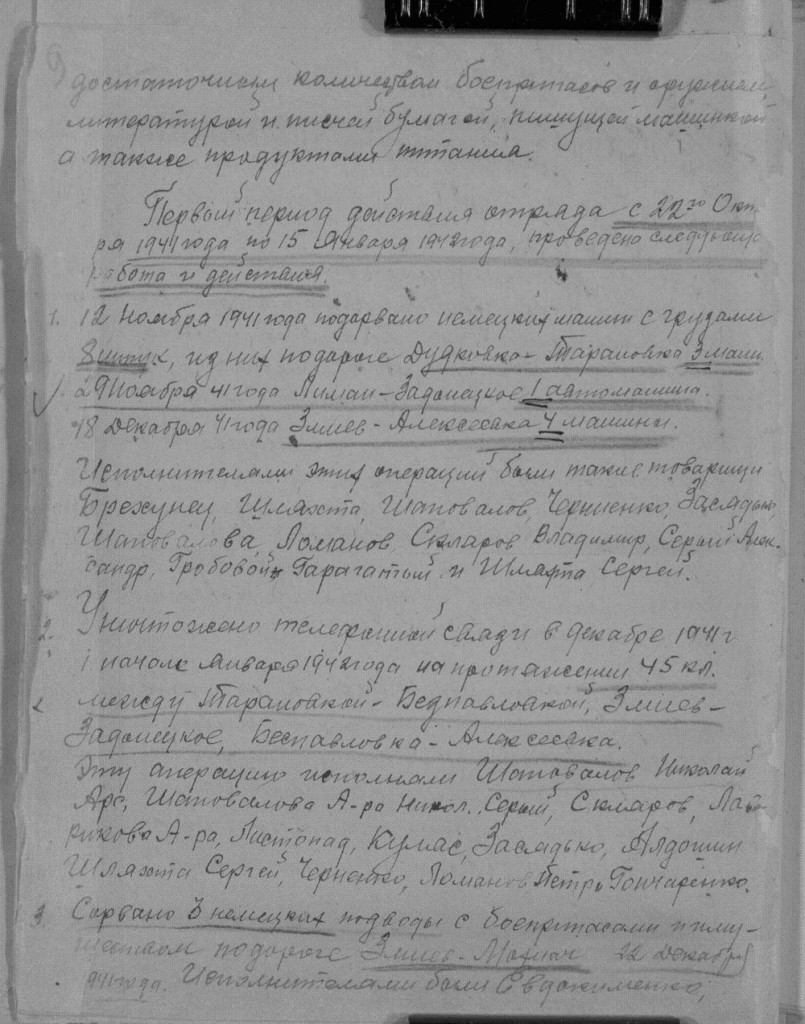 достаточным количеством боеприпасов и оружием,
литературой и писчей бумагой, пишущей машинкой
а также продуктами питания.
Первый период действия отряда с 22го Октя
ря 1941 года по 15 Января 1942 года, проведено следующ
работа и действия.
1. 12 Ноября 1941 года подорвано немецких машин с грузами
8 штук, из них по дороге Дудковка - Тарановка 3 маш.
29 Ноября 41 года Лиман - Задонецкое 1 автомашина.
18 Декабря 41 года Змиев - Алексеевка 4 машины.
Исполнителями этих операций были такие товарищи
Брехунец, Шляхта, Шаповалов, Черниенко, Засядько,
Шаповалова, Ломанов, Скляров Владимир, Серый Алек-
сандр, Гробовой, Гарагатый и Шляхта Сергей.
2. Уничтожено телефонной связи в декабре 1941 г
и начале Января 1942 года на протяжении 45 кл.
между Тарановкой - Беспавловкой, Змиев -
Задонецкое, Беспавловка - Алексеевка.
Эту операцию исполняли Шаповалов Николай
Арс, Шаповалова А-ра Никол., Серый, Скляров,
А-ра, Листопад, Кулас, Засядько, Алдошин
Шляхта Сергей, Черненко, Ломанов Петр, Гончаренко.
3. Сорвано 3 немецких подводы с боеприпасами и иму-
ществом по дороге Змиев - Мохнач 22 Декабря
1941 года. Исполнителями были Евдокименко,